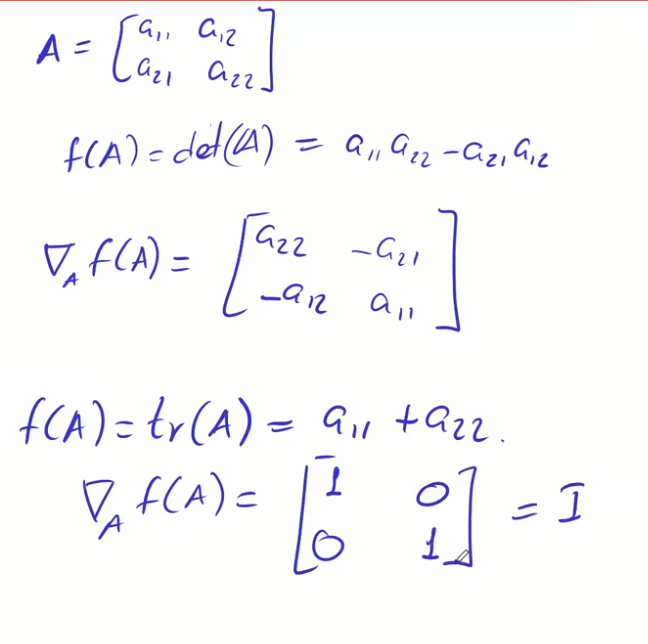 A = [a₁₁ a₁₂
a₂₁ a₂₂]
f(A) = det(A) = a₁₁ a₂₂ - a₂₁ a₁₂
∇_A f(A) = [a₂₂ -a₂₁
-a₁₂ a₁₁]
f(A) = tr(A) = a₁₁ + a₂₂.
∇_A f(A) = [1 0
0 1] = I